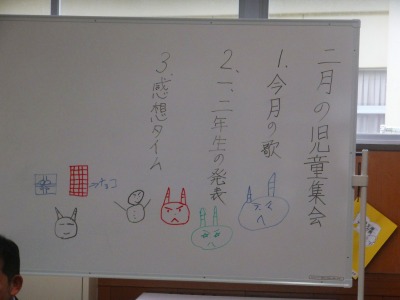 二月の児童集会
1.今月の歌
2.一、二年生の発表
3.感想タイム